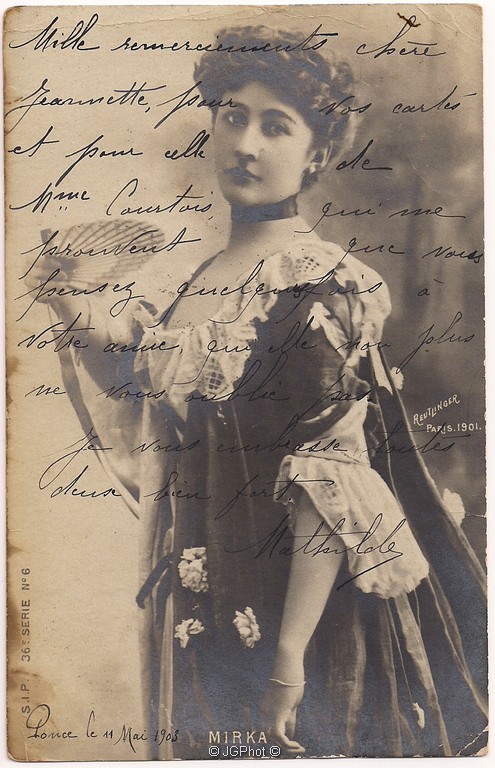 Mille remerciements chère
Jeannette, pour vos cartes
et pour celle de
Mme Courtois, qui me
prouvent que vous
pensez quelquesfois à
votre amie, qui elle non plus
ne vous oublie pas.
Je vous embrasse toutes
deux bien fort.
Mathilde
REUTLINGER
PARIS. 1901.
S.I.P. 36e SERIE No 6
Ponce le 11 Mai 1903
MIRKA
© JGPhot ©